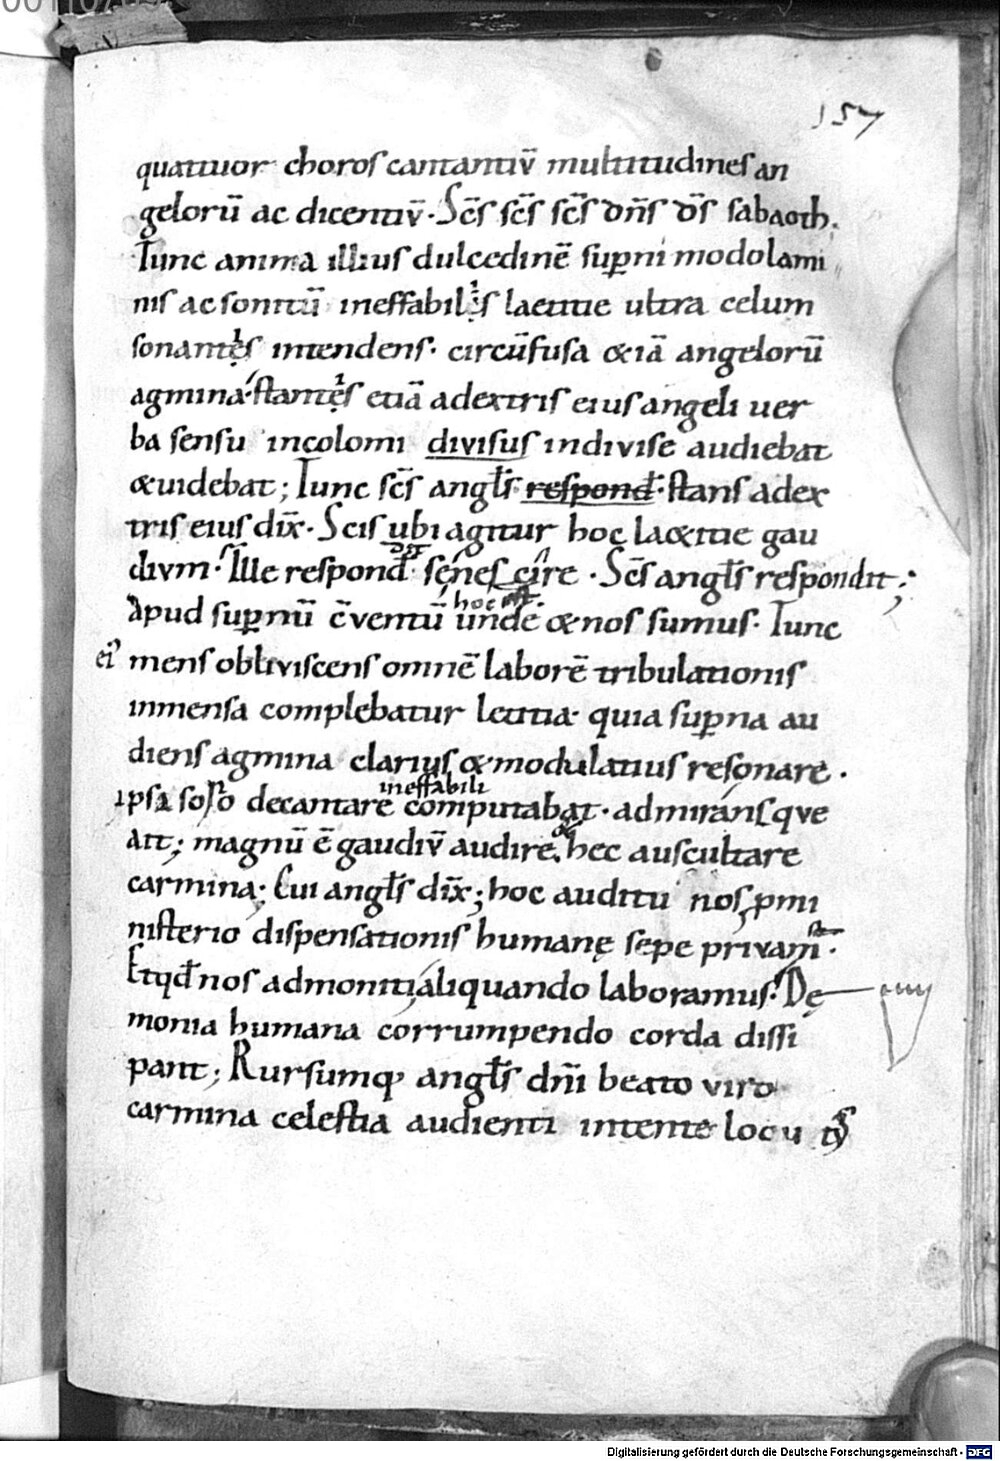 157
quattuor choros cantantiū multitudines an
gelorū ac dicentiū. Scs̄ scs̄ scs̄ dn̄s ds̄ sabaoth.
Tunc anima illius dulcedinē sup̄ni modolami
nis ac sonitū ineffabilis laetitie ultra celum
sonantes intendens. circūfusa &iā angelorū
agmina. stantes etiā adextris eius angeli uer
ba sensu incolomi divisus indivise audiebat
&uidebat; Tunc scs̄ angls̄ respond̄. stans adex
tris eius dix̄. Scis ubi agitur hoc la&itie gau
dium. Ille respond̄ se nescire. Scs̄ angls̄ respondit;
hoc est.
Apud sup̄nū c̄ventū unde &nos sumus. Tunc
ei' mens obliviscens omnē laborē tribulationis
inmensa complebatur letitia. quia sup̄na au
diens agmina clarius & modulatius resonare.
ineffabili
decantare computabat. admiransque
ait; magnū ē gaudiū audire. & hec auscultare
carmina. Cui angls̄ dix̄; hoc auditu nos, p̄ mi
nisterio dispensationis humanę sepe privam̄.
Etqd̄ nos admoniti, aliquando laboramus. Dę
monia humana corrumpendo corda dissi
pant; Rursumq; angls̄ dn̄i beato viro
carmina celestia audienti intente locutus
Digitalisierung gefördert durch die Deutsche Forschungsgemeinschaft - DFG